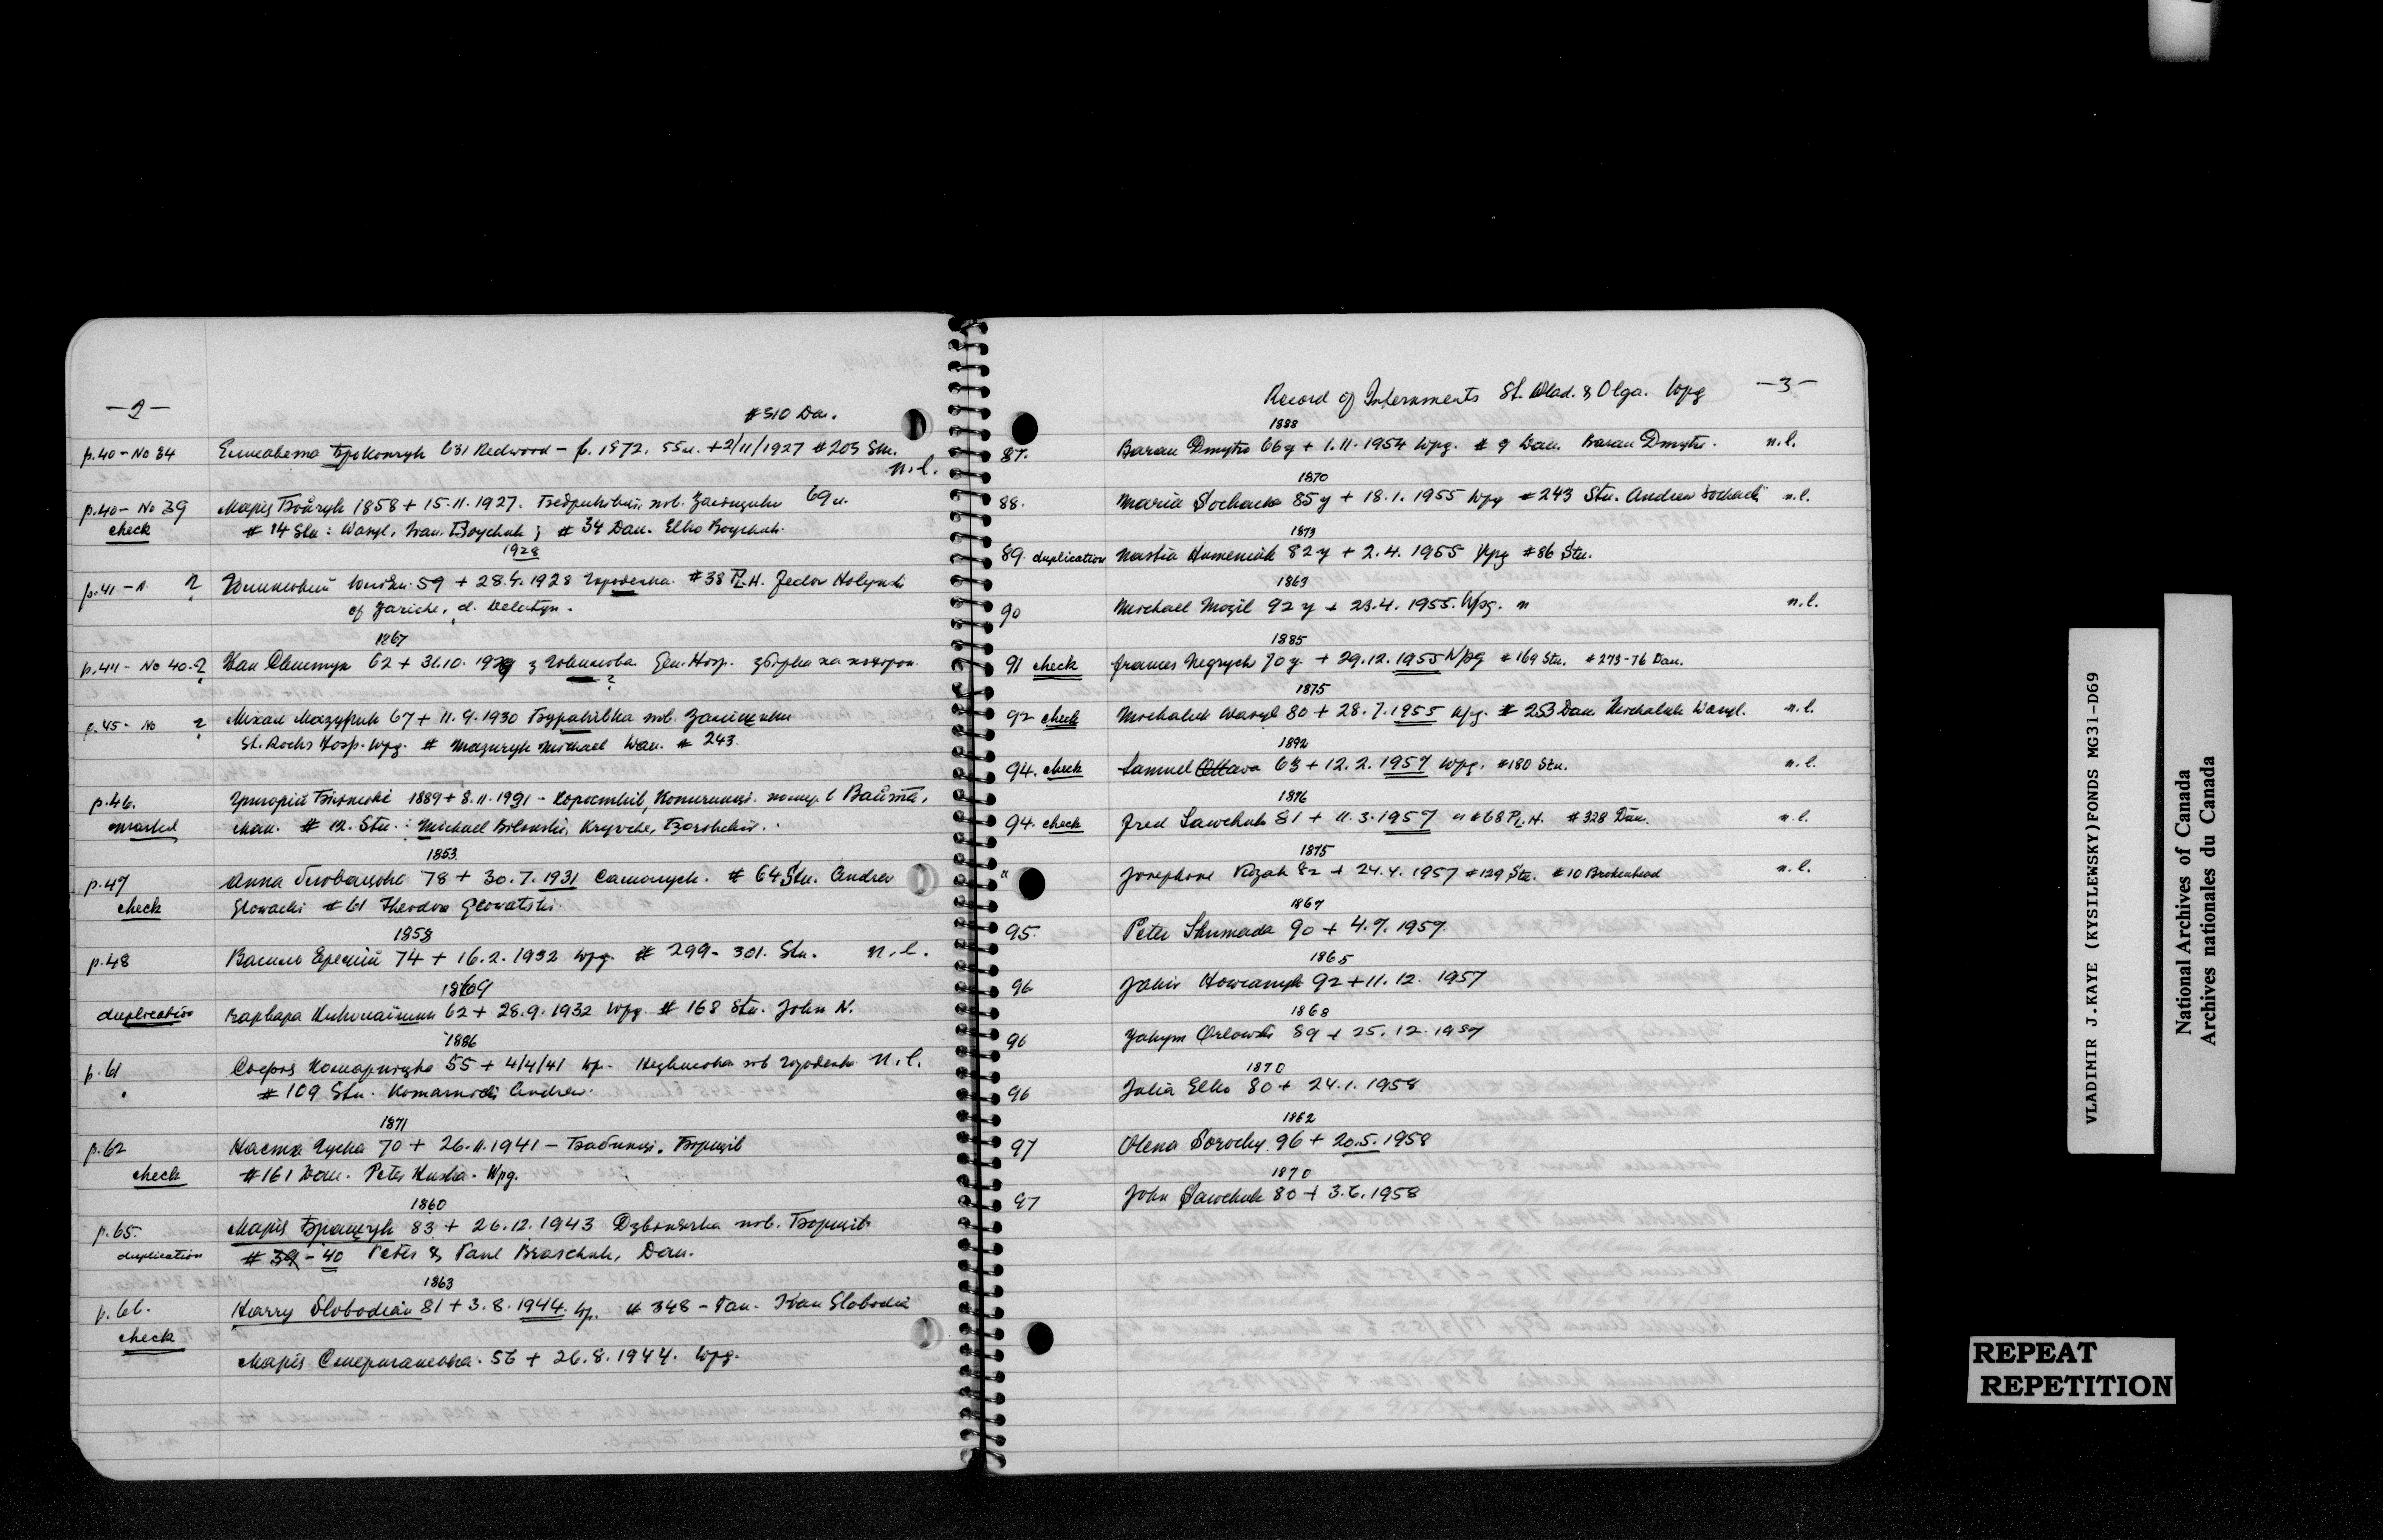 —2—
# 310 Dau.
p.40 – No 34 Елисавета Броkопчук 631 Redwood – f. 1872. 55л. + 2/11/1927 # 203 Stu.
n.l.
p.40 – No 39 Марія Бойчук 1858 + 15.11.1927. пов. Заліщики 69л.
check # 14 Stu: Wasyl, Ivan Boychuk; # 34 Dau. Elko Boychuk.
1928
p.41 – ? 59 + 28.4.1928 Городенка. # 38 P.L.H. Fedor Holynski
of Zariche, d. Delatyn.
1867
p.44 – No 40. ? Іван 62 + 31.10.1929 з Gen. Hosp. збірка на похорон.
?
p.45 – No ? Міхал Мазурик 67 + 11.9.1930 Бураківка пов. Заліщики
St. Rochs Hosp. Wpg. # Mazuryk Michael Dau. # 243.
p.46. Григорій 1889 + 8.11.1931 – Коростків, Копичинці.
marked Man. # 12. Stu.: Michael Bilowski, Kryvche, Borshchiv.
1853.
p.47 Анна 78 + 30.7.1931 # 64 Stu. Andrew
check Glowacki # 61 Theodor Glowatski
1858
p.48 Василь 74 + 16.2.1932 Wpg. # 299 – 301. Stu. n.l.
1869
duplication Варвара 62 + 28.9.1932 Wpg. # 168 Stu. John N.
1886
p.61 Комарницка 55 + 4/4/41 Wp. – Незвиська пов Городенка n.l.
# 109 Stu. Komarnicki Andrew.
1871
p.62 Настя Гуска 70 + 26.11.1941 – Бабинці. Борщів
check # 161 Dau. Peter Huska. Wpg.
1860
p.65. Марія Бращук 83 + 26.12.1943 Дзвинячка пов. Борщів
duplication # 39 – 40 Peter & Paul Braschuk, Dau.
1863
p.66. Harry Slobodian 81 + 3.8.1944. Wp. # 348 – Dau. Ivan Slobodian
check
Марія 56 + 26.8.1944. Wpg.
Record of Internments St. Vlad. & Olga. Wpg —3—
1888
87. Baran Dmytro 66y + 1.11.1954 Wpg. # 9 Dau. Baran Dmytro. n.l.
1870
88. Maria Sochacka 85y + 18.1.1955 Wpg # 243 Stu. Andrew Sochacki n.l.
1873
89. duplication Nastia Humeniuk 82y + 2.4.1955 Wpg # 86 Stu.
1863
90 Michael Mozil 92y + 23.4.1955. Wpg. n.l.
1885
91 check Frances Negrych 70y. + 29.12.1955 Wpg # 169 Stu. # 273-76 Dau.
1875
92 check Michaluk Wasyl 80 + 28.7.1955 Wpg. # 253 Dau. Michaluk Wasyl. n.l.
1892
94. check Samuel Ottava 63 + 12.2.1957 Wpg. # 180 Stu. n.l.
1876
94. check Fred Sawchuk 81 + 11.3.1957 # 68 P.L.H. # 328 Dau. n.l.
1875
" Josephine Kozak 82 + 24.4.1957 # 129 Stu. # 10 Brokenhead n.l.
1867
95. Peter Shumada 90 + 4.7.1957.
1865
96 Jakiv 92 + 11.12.1957
1868
96 Yakym Orlowski 89 + 25.12.1957
1870
96 Julia Elko 80 + 24.1.1958
1862
97 Olena Sorochy 96 + 20.5.1958
1870
97 John Sawchuk 80 + 3.6.1958
VLADIMIR J.KAYE (KYSILEWSKY)FONDS MG31-D69
National Archives of Canada
Archives nationales du Canada
REPEAT
REPETITION